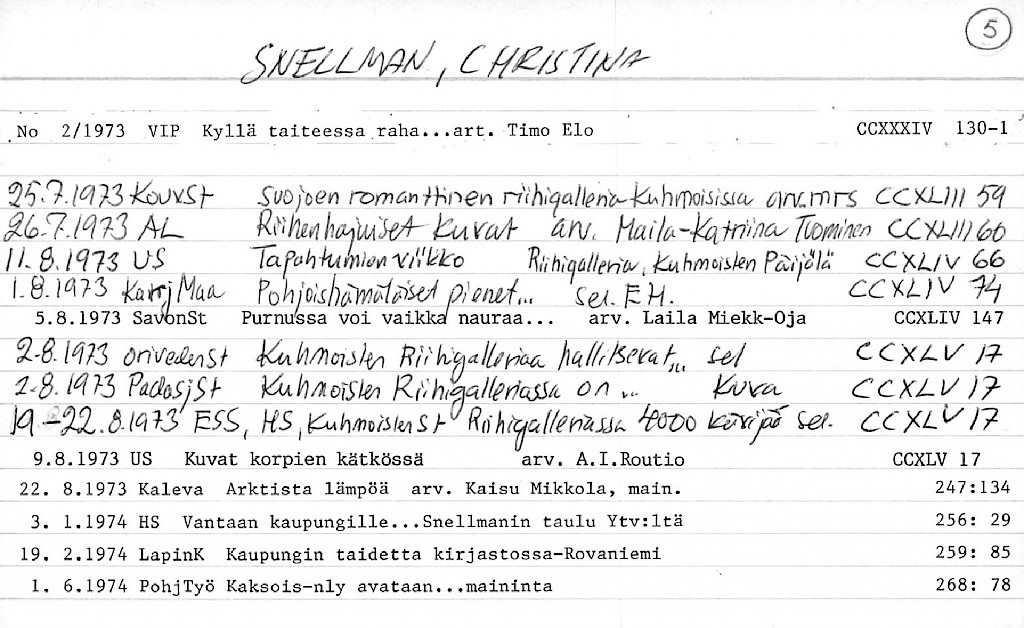 5
SNELLMAN, CHRISTINA
No 2/1973 VIP Kyllä taiteessa raha...art. Timo Elo CCXXXIV 130-1
25.7.1973 KouvSt Suojoen romanttinen riihigalleria Kuhmoisissa arv.mrs CCXLIII 59
26.7.1973 AL Riihenhajuiset kuvat arv. Maila-Katriina Tuominen CCXLIII 60
11.8.1973 US Tapahtumien viikko Riihigalleria, Kuhmoisten Päijälä CCXLIV 66
1.8.1973 KarjMaa Pohjoishämäläiset pienet... sel. E.H. CCXLIV 74
5.8.1973 SavonSt Purnussa voi vaikka nauraa... arv. Laila Miekk-Oja CCXLIV 147
2.8.1973 OrivedenSt Kuhmoisten Riihigalleriaa hallitsevat... sel CCXLV 17
2.8.1973 PadasjSt Kuhmoisten Riihigalleriassa on ... Kuva CCXLV 17
19.-22.8.1973 ESS, HS, KuhmoistenSt Riihigalleriassa 4000 kävijää sel. CCXLV 17
9.8.1973 US Kuvat korpien kätkössä arv. A.I.Routio CCXLV 17
22. 8.1973 Kaleva Arktista lämpöä arv. Kaisu Mikkola, main. 247:134
3. 1.1974 HS Vantaan kaupungille...Snellmanin taulu Ytv:ltä 256: 29
19. 2.1974 LapinK Kaupungin taidetta kirjastossa-Rovaniemi 259: 85
1. 6.1974 PohjTyö Kaksois-nly avataan...maininta 268: 78